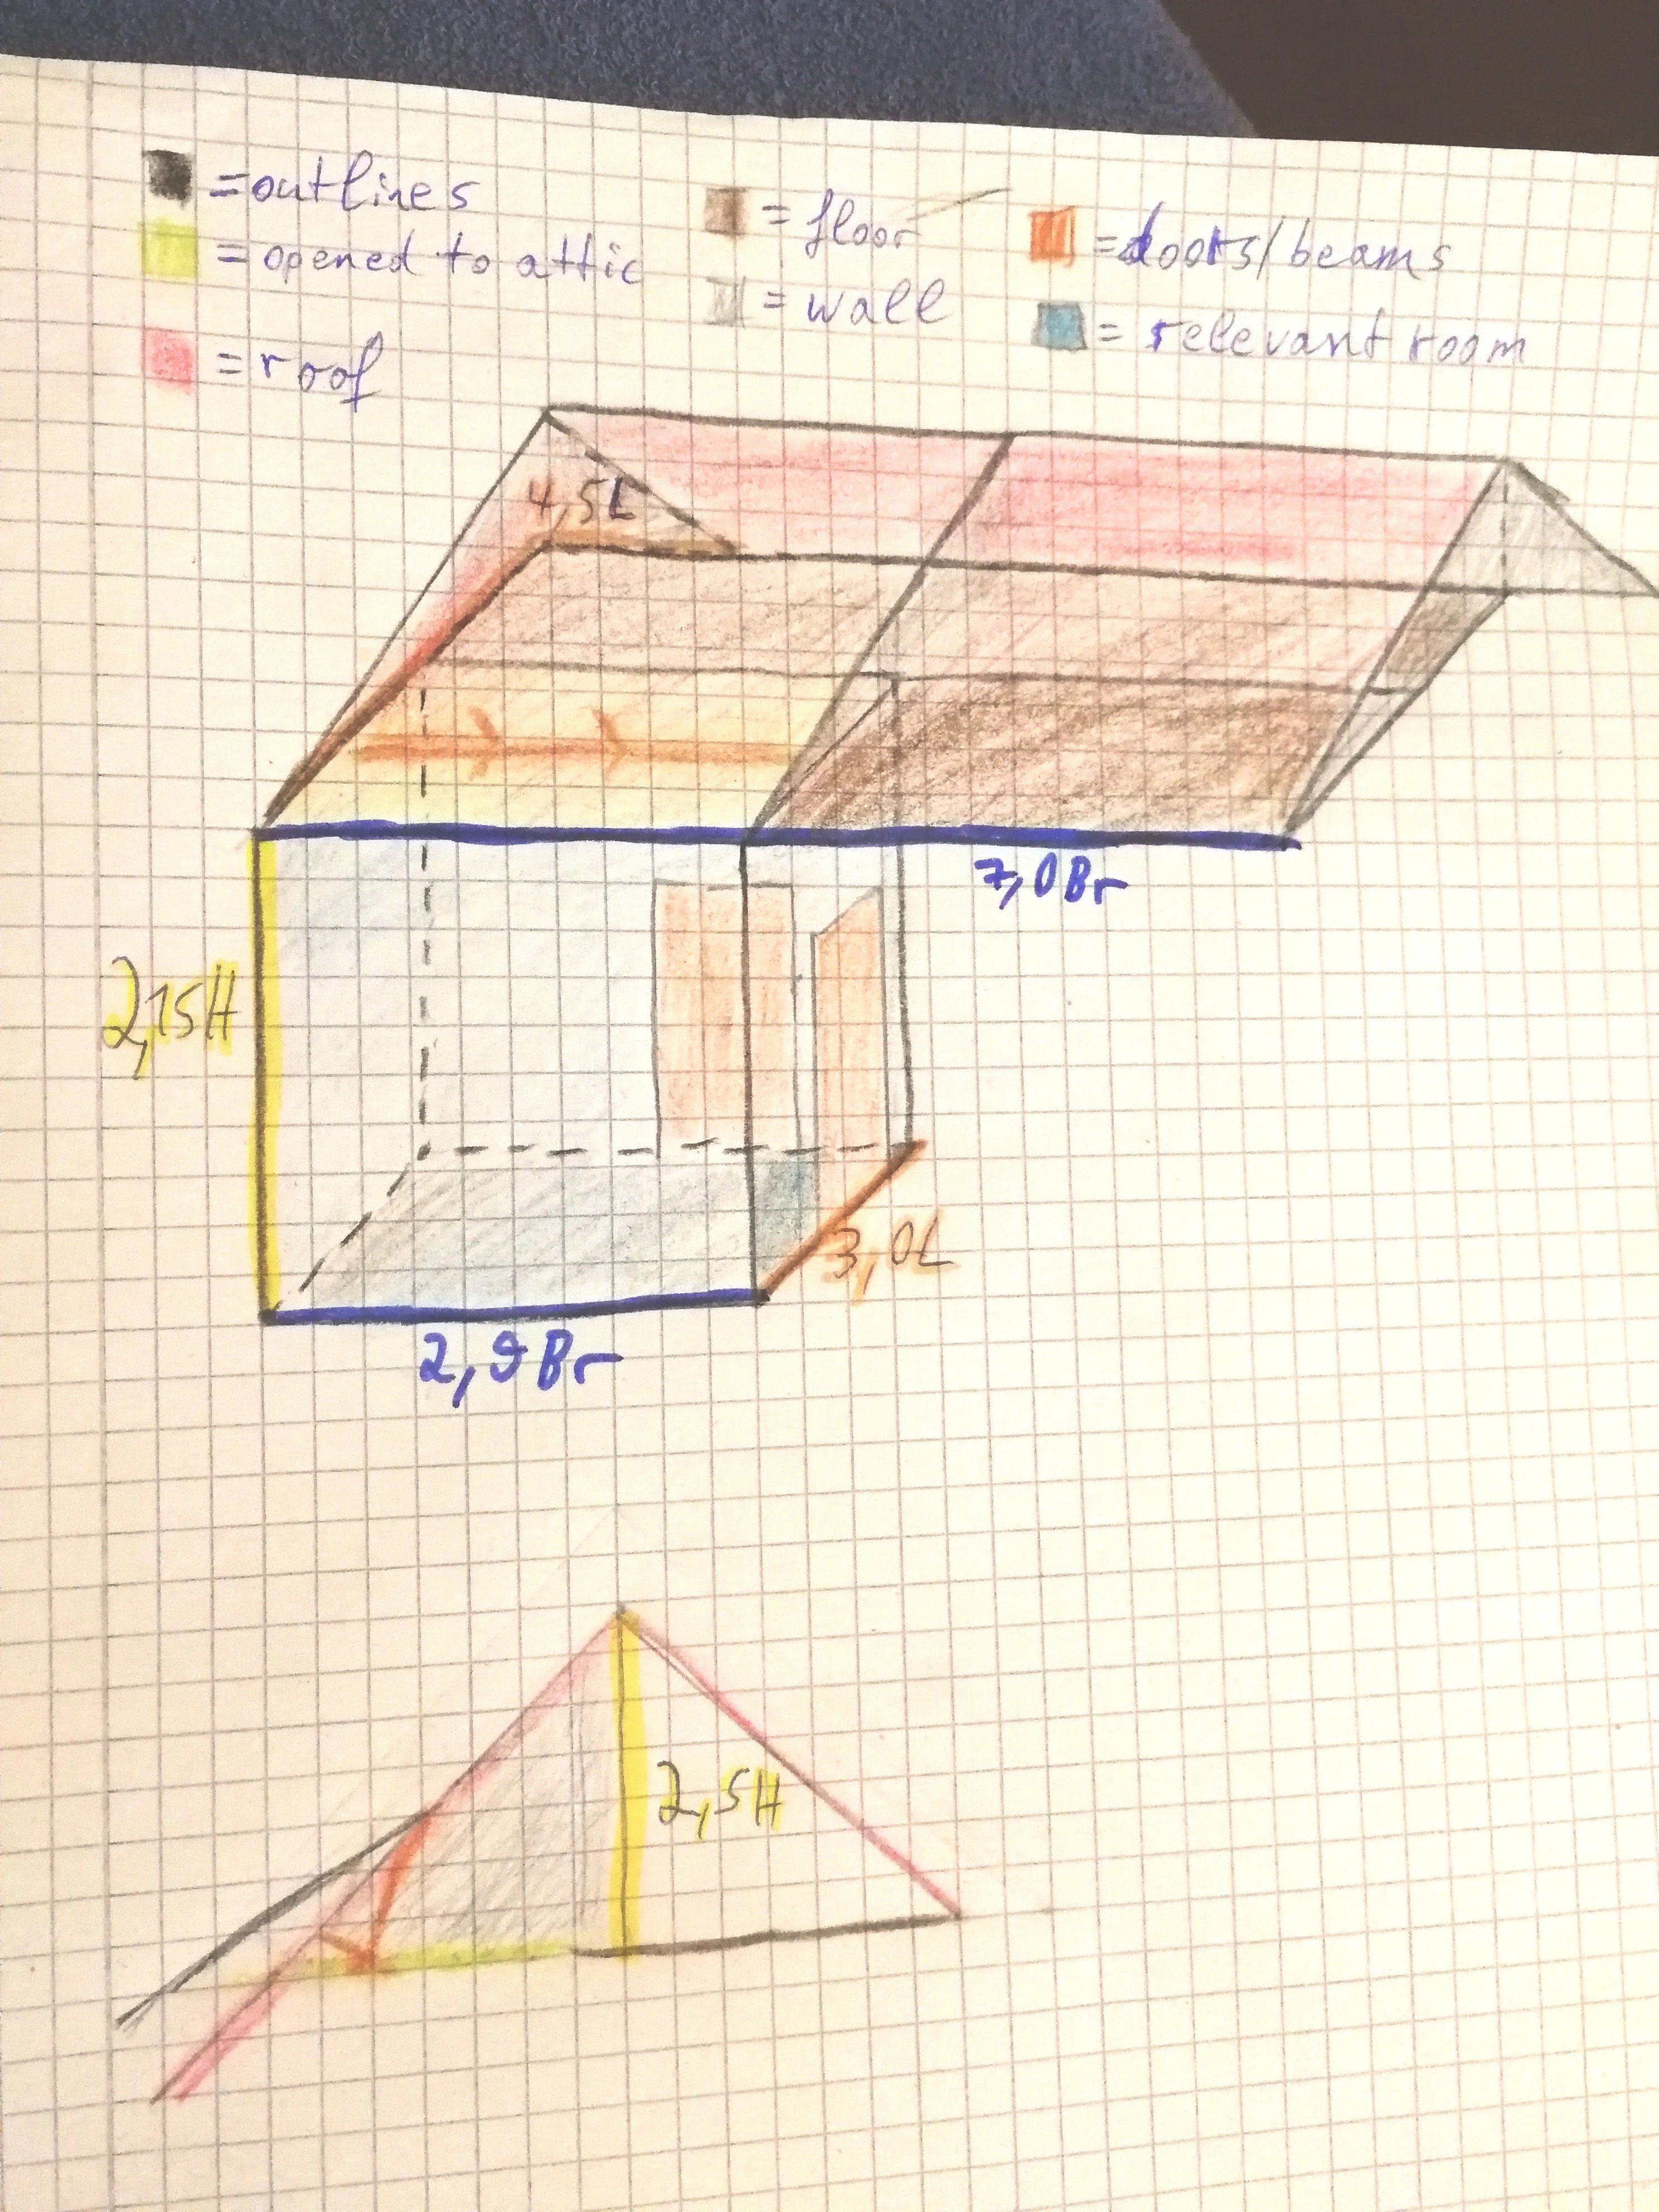 = outlines
= opened to attic
= roof
= floor
= wall
= doors/beams
= relevant room
4,5L
7,0Br
2,15H
3,0L
2,9Br
2,5H